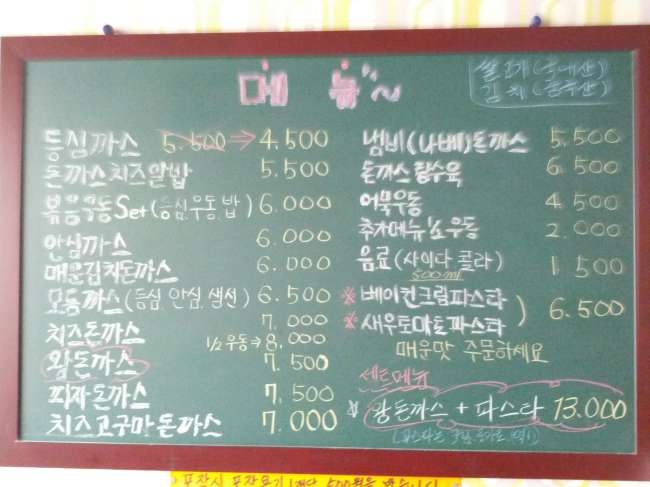 메뉴~
쌀 (국내산)
김치 (중국산)
등심까스 5.500 → 4.500
돈까스치즈알밥 5.500
볶음우동 Set (등심, 우동, 밥) 6.000
안심까스 6.000
매운김치돈까스 6.000
모듬까스 (등심, 안심, 생선) 6.500
치즈돈까스 7.000
1/2 우동 → 8.000
왕돈까스 7.500
피자돈까스 7.500
치즈고구마돈까스 7.000
냄비(나베)돈까스 5.500
돈까스탕수육 6.500
어묵우동 4.500
추가메뉴 "소"우동 2.000
음료 (사이다 콜라) 1.500
500ml
※ 베이컨크림파스타
※ 새우토마토파스타 ) 6.500
매운맛 주문하세요
세트메뉴
☆ 왕돈까스 + 파스타 13.000